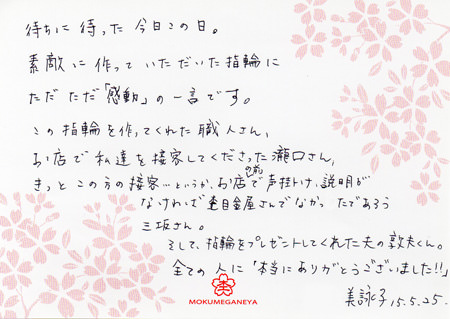 待ちに待った今日この日。
素敵に作っていただいた指輪に
ただただ「感動」の一言です。
この指輪を作ってくれた職人さん、
お店で私達を接客してくださった瀧口さん、
きっとこの方の接客…というか、お店の前で声掛け、説明が
なければ杢目金屋さんでなかったであろう
三坂さん。
そして、指輪をプレゼントしてくれた夫の敦夫くん。
全ての人に「本当にありがとうございました!!」
美詠子 15.5.25.
MOKUMEGANEYA